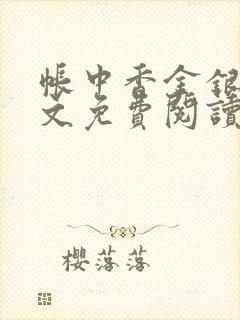 帳中香金銀
文免費閱讀
櫻落落